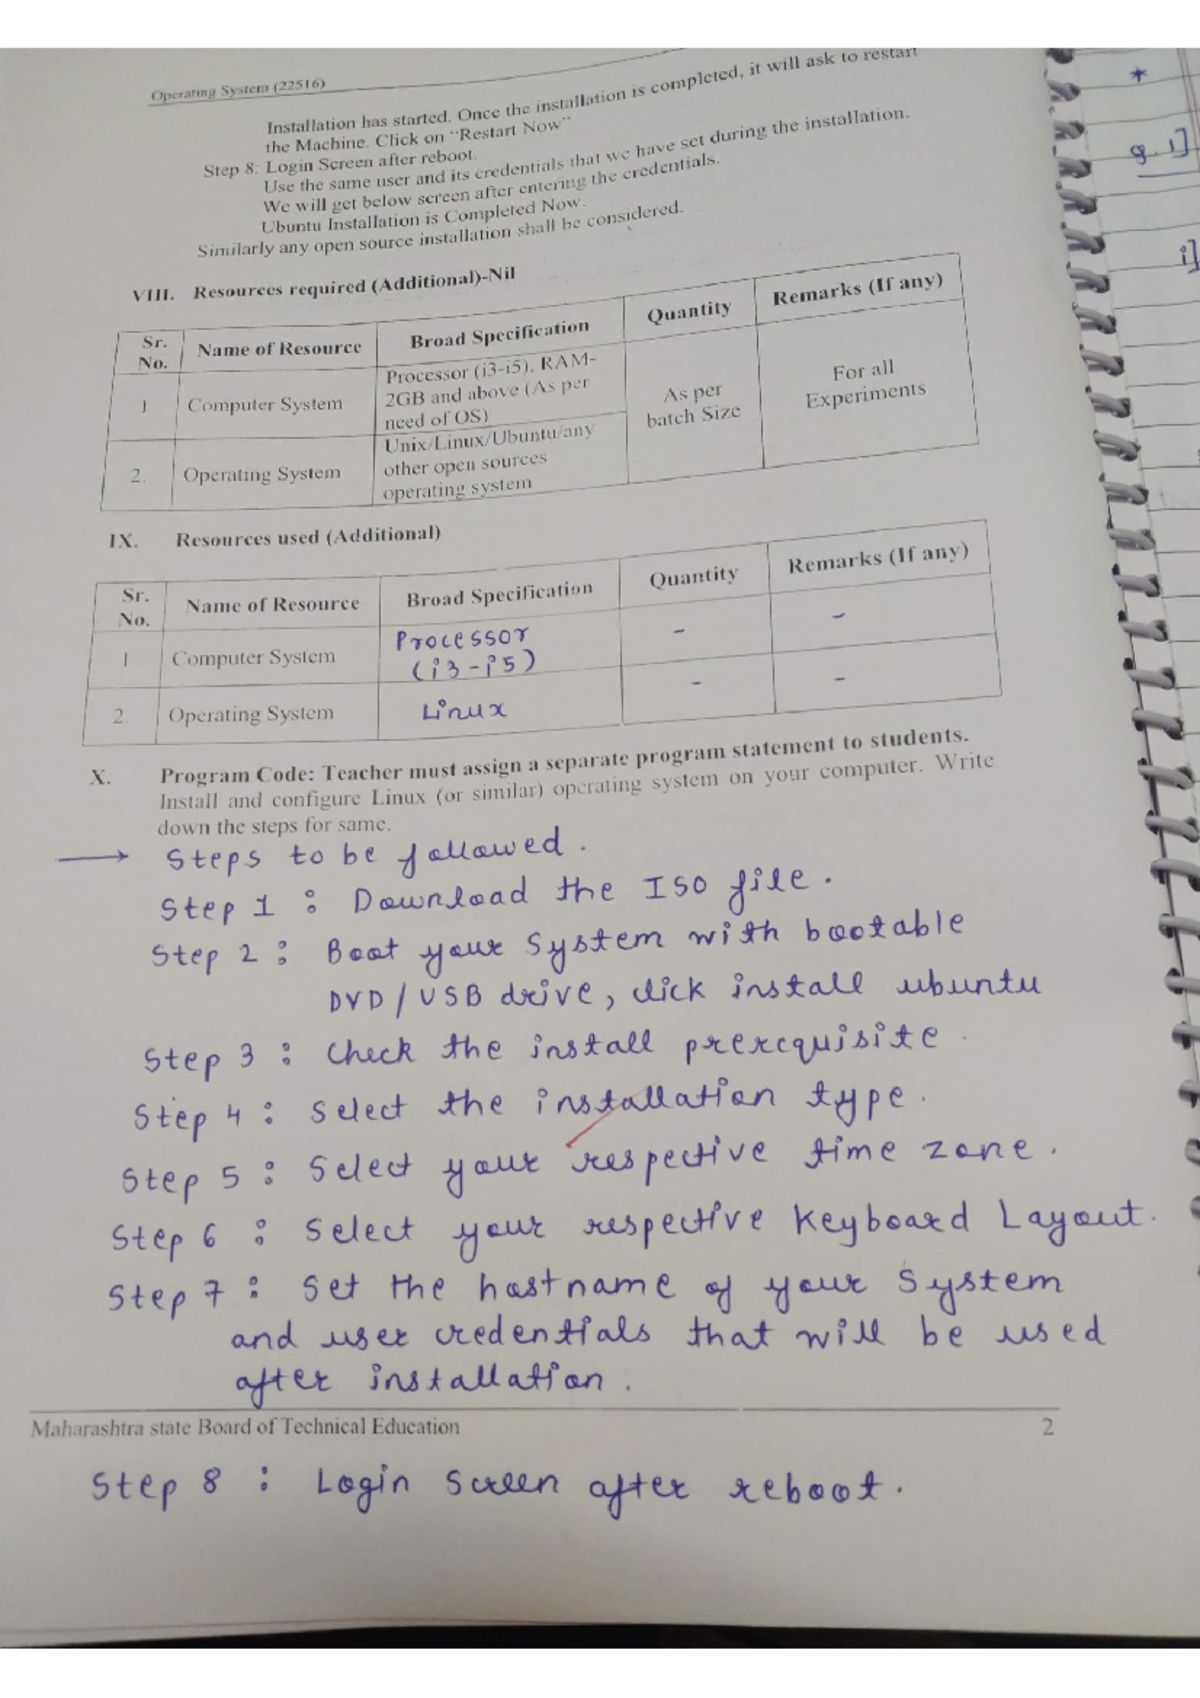 Operating System (22516)
Installation has started. Once the installation is completed, it will ask to restart
the Machine. Click on "Restart Now"
Step 8: Login Screen after reboot.
Use the same user and its credentials that we have set during the installation.
We will get below screen after entering the credentials.
Ubuntu Installation is Completed Now.
Similarly any open source installation shall be considered.
VIII. Resources required (Additional)-Nil
Sr. No. Name of Resource Broad Specification Quantity Remarks (If any)
1 Computer System Processor (i3-i5), RAM-
2GB and above (As per
need of OS)
As per
batch Size
For all
Experiments
2. Operating System Unix/Linux/Ubuntu/any
other open sources
operating system
IX. Resources used (Additional)
Sr. No. Name of Resource Broad Specification Quantity Remarks (If any)
1 Computer System Processor
(i3-i5) - -
2. Operating System Linux - -
X. Program Code: Teacher must assign a separate program statement to students.
Install and configure Linux (or similar) operating system on your computer. Write
down the steps for same.
→ Steps to be followed.
Step 1 : Download the ISO file.
Step 2 : Boot your System with bootable
DVD/USB drive, click install ubuntu
Step 3 : Check the install prerequisite.
Step 4 : Select the installation type.
Step 5 : Select your respective time zone.
Step 6 : Select your respective Keyboard Layout.
Step 7 : Set the hostname of your System
and user credentials that will be used
after installation.
Maharashtra state Board of Technical Education 2
Step 8 : Login Screen after reboot.
*
Q.1]
i]